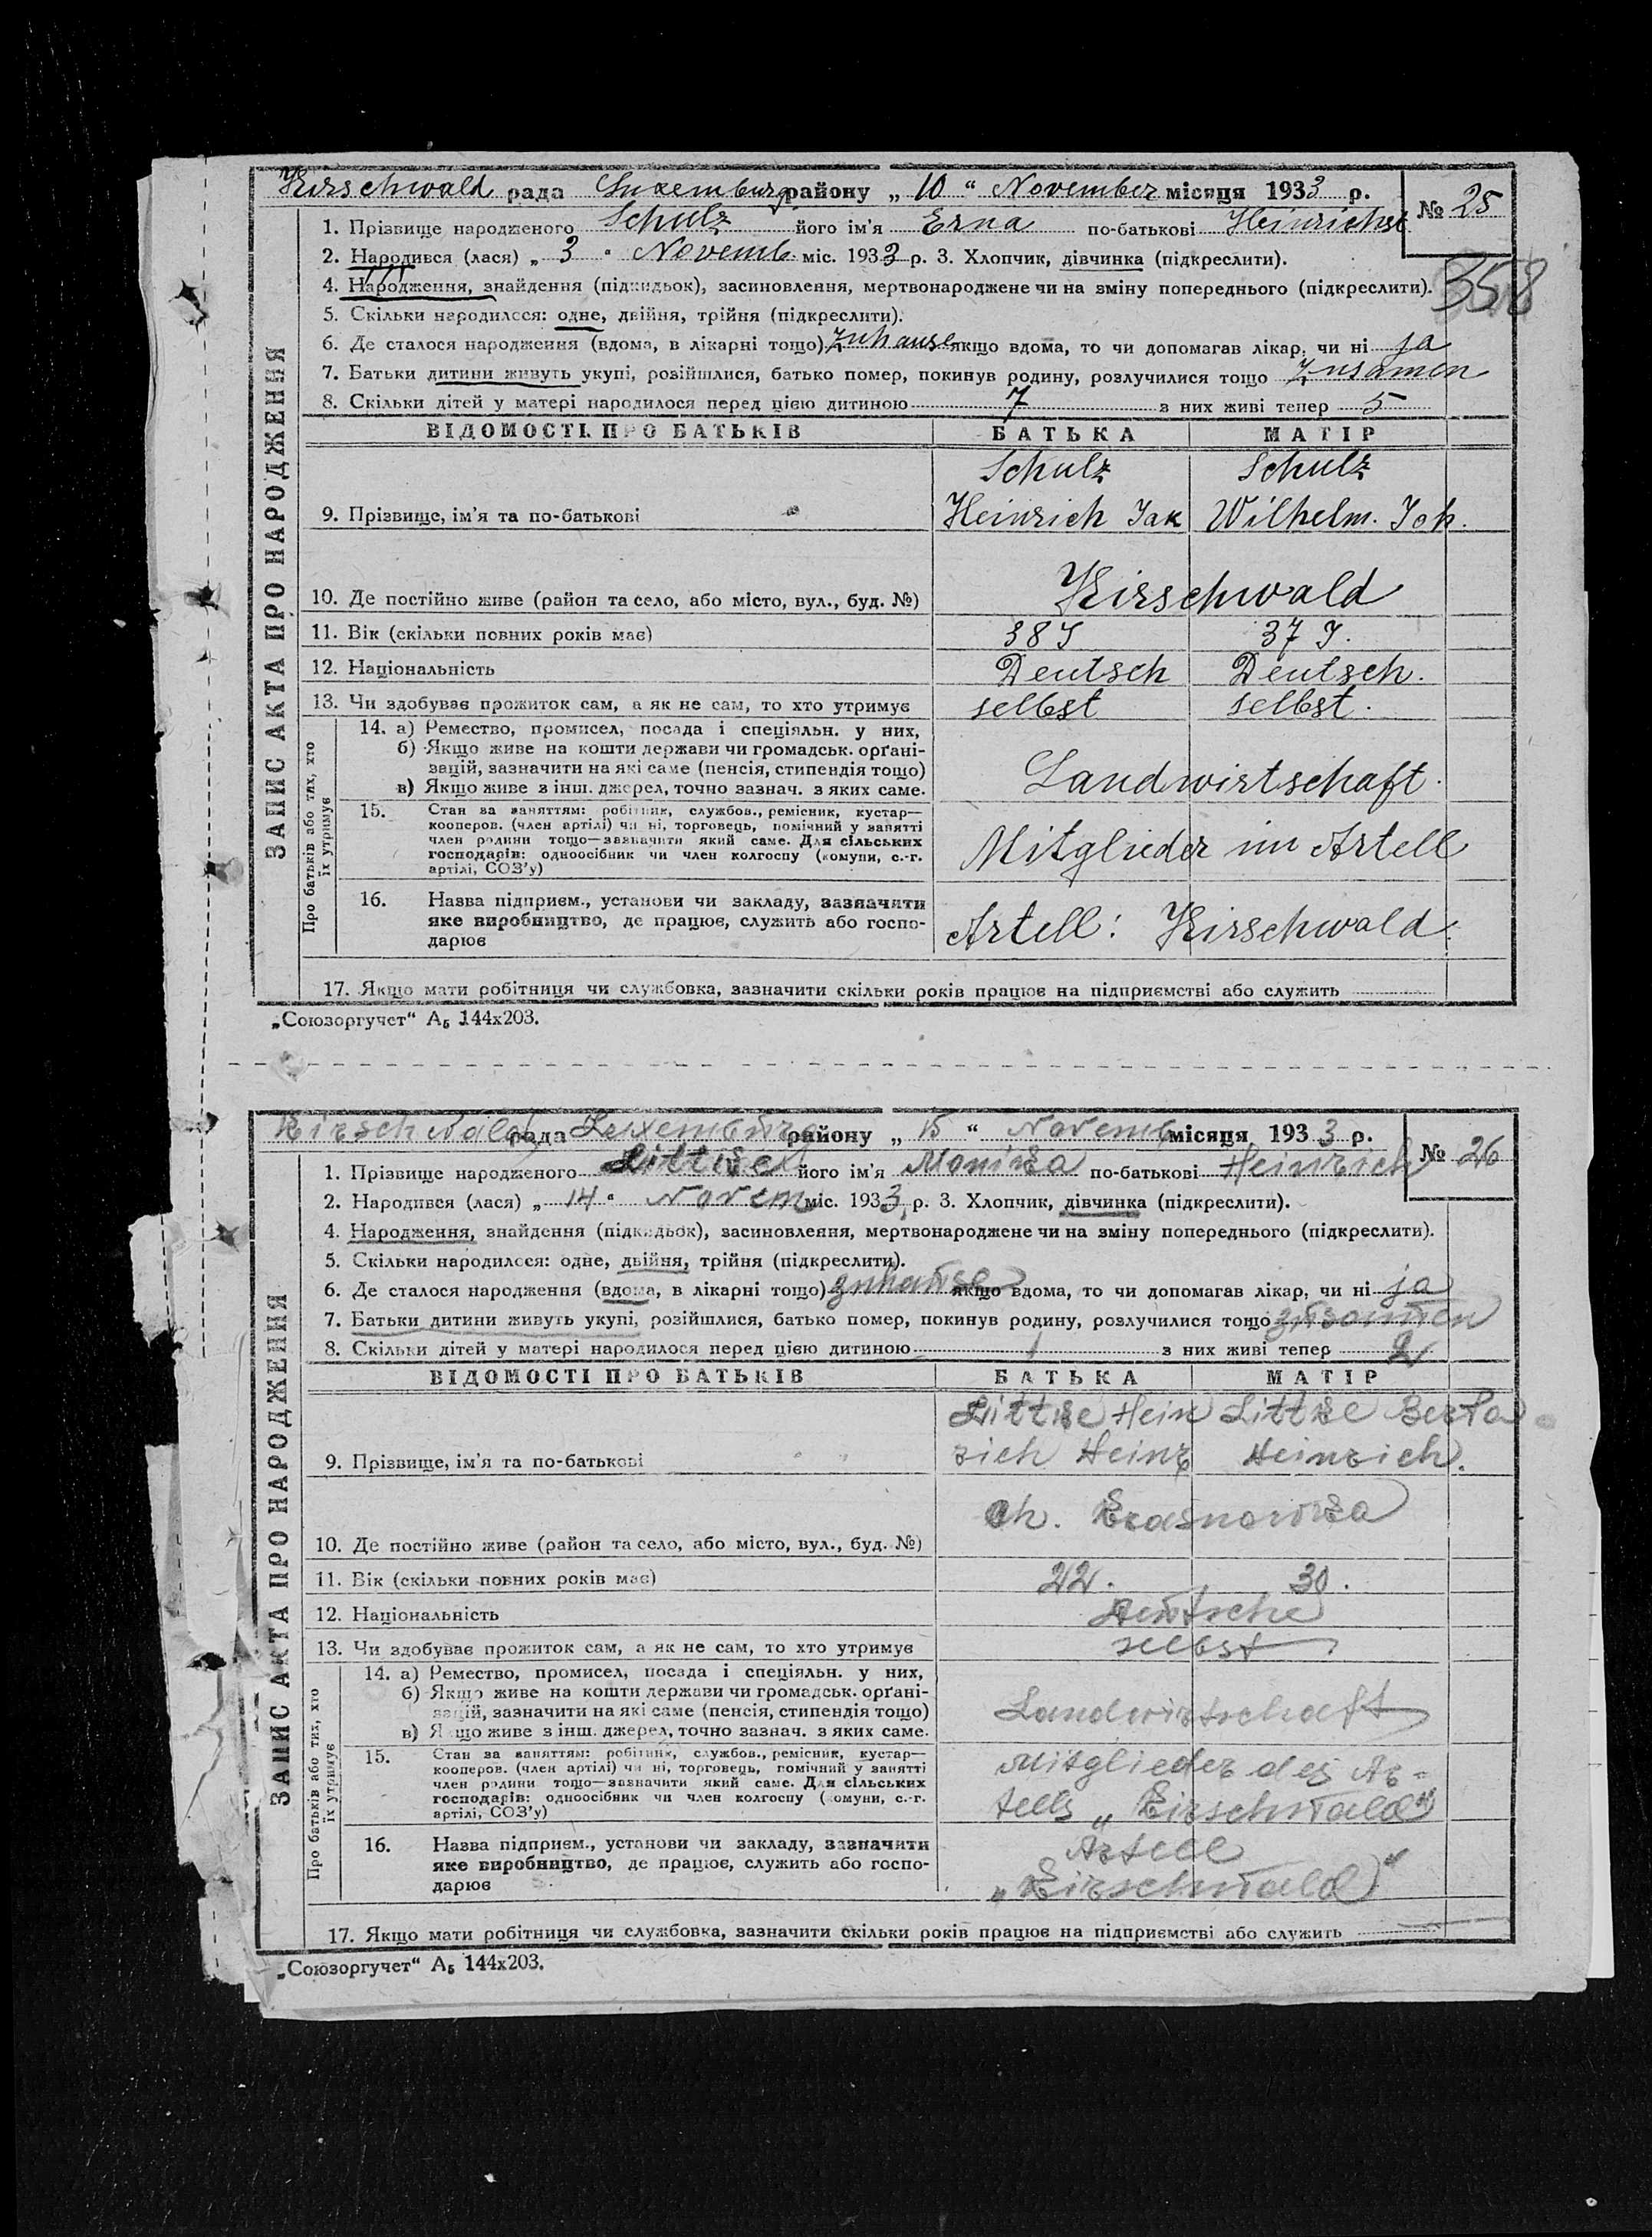 Kirschwald рада Luxemburg району „ 10 “ November місяця 1933 р.
№ 25
1. Прізвище народженого Schulz його ім'я Erna по-батькові Heinrichst
2. Народився (лася) „ 3 “ Novemb. міс. 1933 р. 3. Хлопчик, дівчинка (підкреслити).
358
4. Народження, знайдення (підкидьок), засиновлення, мертвонароджене чи на зміну попереднього (підкреслити).
5. Скільки народилося: одне, двійня, трійня (підкреслити).
6. Де сталося народження (вдома, в лікарні тощо) zuhause якщо вдома, то чи допомагав лікар, чи ні ja
7. Батьки дитини живуть укупі, розійшлися, батько помер, покинув родину, розлучилися тощо zusamen
8. Скільки дітей у матері народилося перед цією дитиною 7 з них живі тепер 5
ВІДОМОСТІ ПРО БАТЬКІВ БАТЬКА МАТІР
Schulz Schulz
9. Прізвище, ім'я та по-батькові Heinrich Jak Wilhelm. Joh.
10. Де постійно живе (район та село, або місто, вул., буд. №) Kirschwald
11. Вік (скільки повних років має) 38 J 37 J.
12. Національність Deutsch Deutsch.
13. Чи здобуває прожиток сам, а як не сам, то хто утримує selbst selbst.
14. а) Ремество, промисел, посада і спеціяльн. у них,
б) Якщо живе на кошти держави чи громадськ. орґані-
зацій, зазначити на які саме (пенсія, стипендія тощо)
в) Якщо живе з інш. джерел, точно зазнач. з яких саме.
Landwirtschaft.
15. Стан за заняттям: робітник, службов., ремісник, кустар—
кооперов. (член артілі) чи ні, торговець, помічний у занятті
член родини тощо—зазначити який саме. Для сільських
господарів: одноосібник чи член колгоспу (комуни, с.-г.
артілі, СОЗ'у)
Mitglieder im Artell
16. Назва підприєм., установи чи закладу, зазначити
яке виробництво, де працює, служить або госпо-
дарює
Artell: Kirschwald.
17. Якщо мати робітниця чи службовка, зазначити скільки років працює на підприємстві або служить
ЗАПИС АКТА ПРО НАРОДЖЕННЯ
Про батьків або тих, хто
їх утримує
„Союзоргучет“ А5 144х203.
Kirschwald рада Luxemburg району „ 15 “ Novemb місяця 1933 р.
№ 26
1. Прізвище народженого Littke його ім'я Monika по-батькові Heinrich
2. Народився (лася) „ 14 “ Novem міс. 1933 р. 3. Хлопчик, дівчинка (підкреслити).
4. Народження, знайдення (підкидьок), засиновлення, мертвонароджене чи на зміну попереднього (підкреслити).
5. Скільки народилося: одне, двійня, трійня (підкреслити).
6. Де сталося народження (вдома, в лікарні тощо) zuhause якщо вдома, то чи допомагав лікар, чи ні ja
7. Батьки дитини живуть укупі, розійшлися, батько помер, покинув родину, розлучилися тощо
8. Скільки дітей у матері народилося перед цією дитиною 1 з них живі тепер 2
ВІДОМОСТІ ПРО БАТЬКІВ БАТЬКА МАТІР
Littke Hein Littke Berta
9. Прізвище, ім'я та по-батькові rich Heinr Heinrich.
10. Де постійно живе (район та село, або місто, вул., буд. №) ch. Krasnowka
11. Вік (скільки повних років має) 22. 30.
12. Національність Deutsche
13. Чи здобуває прожиток сам, а як не сам, то хто утримує selbst
14. а) Ремество, промисел, посада і спеціяльн. у них,
б) Якщо живе на кошти держави чи громадськ. орґані-
зацій, зазначити на які саме (пенсія, стипендія тощо)
в) Якщо живе з інш. джерел, точно зазнач. з яких саме.
Landwirtschaft
15. Стан за заняттям: робітник, службов., ремісник, кустар—
кооперов. (член артілі) чи ні, торговець, помічний у занятті
член родини тощо—зазначити який саме. Для сільських
господарів: одноосібник чи член колгоспу (комуни, с.-г.
артілі, СОЗ'у)
Mitglieder des Ar-
tells „Kirschwald“
16. Назва підприєм., установи чи закладу, зазначити
яке виробництво, де працює, служить або госпо-
дарює
Artell
„Kirschwald“
17. Якщо мати робітниця чи службовка, зазначити скільки років працює на підприємстві або служить
ЗАПИС АКТА ПРО НАРОДЖЕННЯ
Про батьків або тих, хто
їх утримує
„Союзоргучет“ А5 144х203.